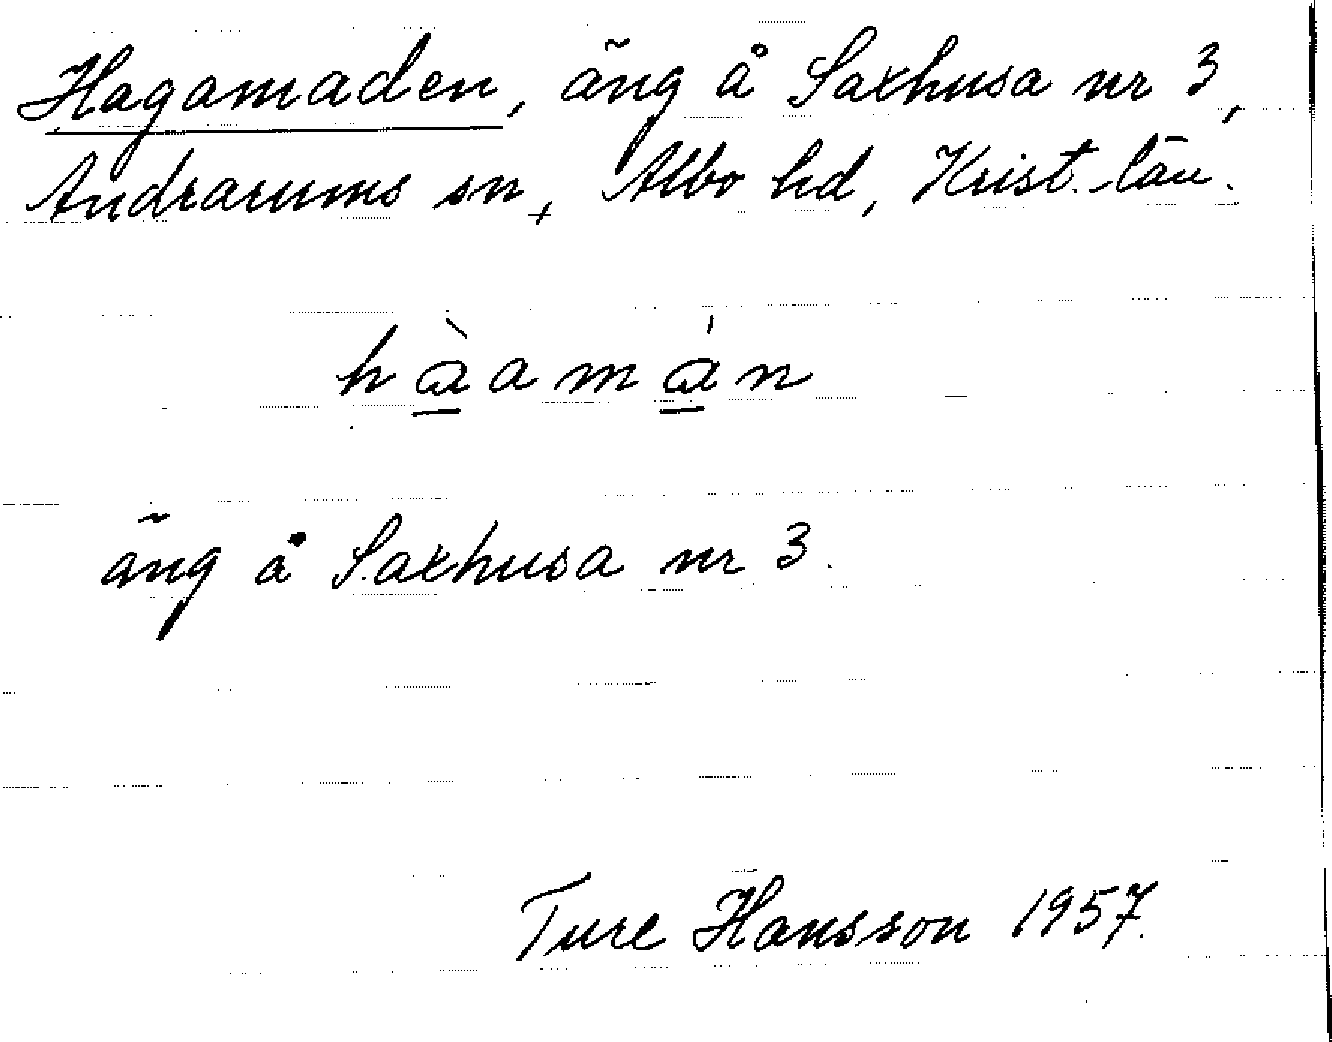 Hagamaden, äng å Saxhusa nr 3,
Andrarums sn, Albo hd, Krist. län.
hàamán
äng å Saxhusa nr 3.
Ture Hansson 1957.